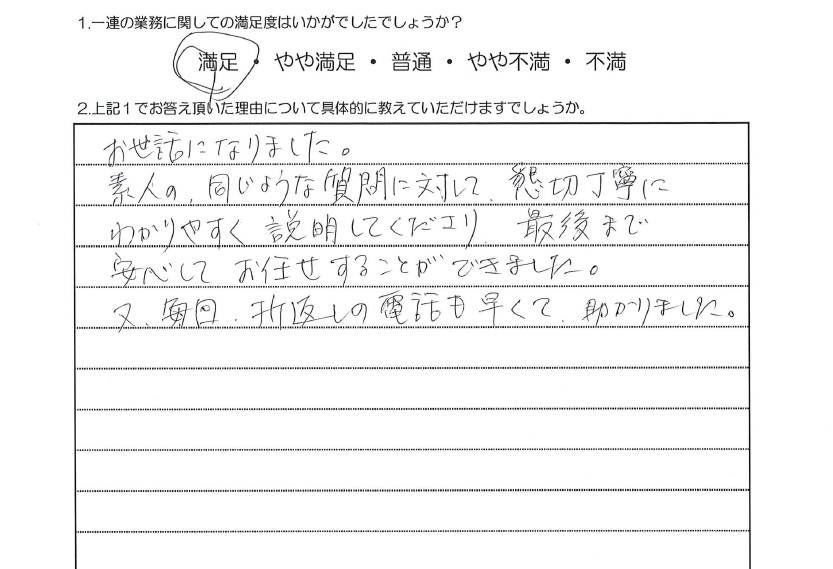 1.一連の業務に関しての満足度はいかがでしたでしょうか？
満足 ・ やや満足 ・ 普通 ・ やや不満 ・ 不満
2.上記１でお答え頂いた理由について具体的に教えていただけますでしょうか。
お世話になりました。
素人の、同じような質問に対して、懇切丁寧に
わかりやすく説明してくださり、最後まで
安心してお任せすることができました。
又、毎回、折返しの電話も早くて、助かりました。